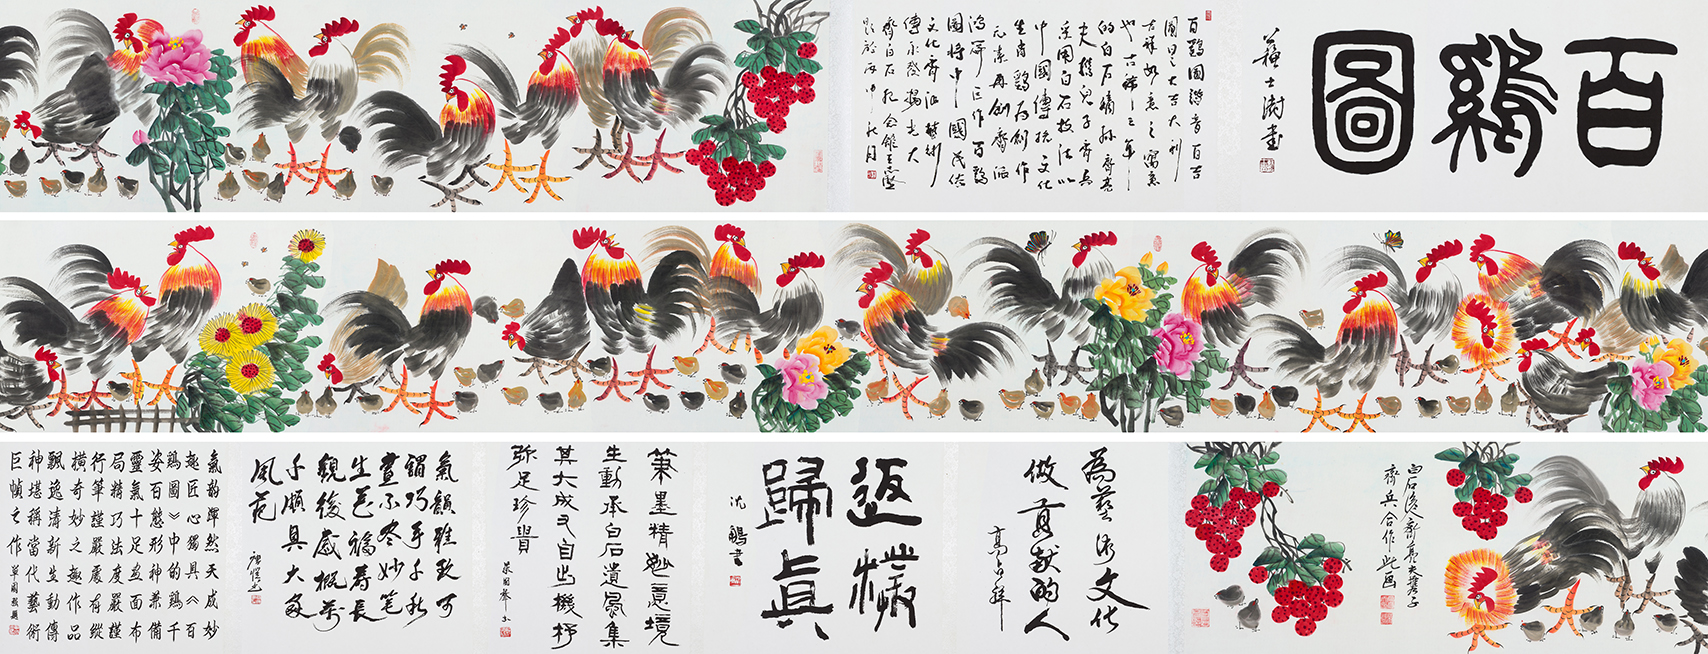 百鷄圖
蘇士澍書
百鷄圖諧音百吉
圖日日大吉大利
吉祥如意之寓意
也古稀之年
的白石嫡孫齊亮
夫携兒子齊兵
采用白石技法以
中國傳統文化
生肖鷄为創作
元素再創齊派
巨作百鷄
國將中國民俗
文化齊派藝術
傳承發揚光大
齊白石紀念館王
題於丙申秋月
白石後齊亮夫携子
齊兵合作此畫
為藝術文化
做貢献的人
高占祥
返樸
歸真
沈鵬書
筆墨精妙意境
生動承白石遺風集
其大成又自出機杼
弥足珍貴
氣韻雅致可
謂巧手千秋
畫不尽妙筆
生花福壽長
觀後感概萬
千頗具大家
風范
氣韵渾然天成妙
趣匠心獨具《百
鷄圖》中的鷄千
姿百態形神兼備
靈氣十足畫面布
局精巧法度嚴謹
行筆謹嚴處有縱
橫奇妙之趣作品
飄逸清新生動傳
神堪稱當代藝術
巨幀之作 單國強題